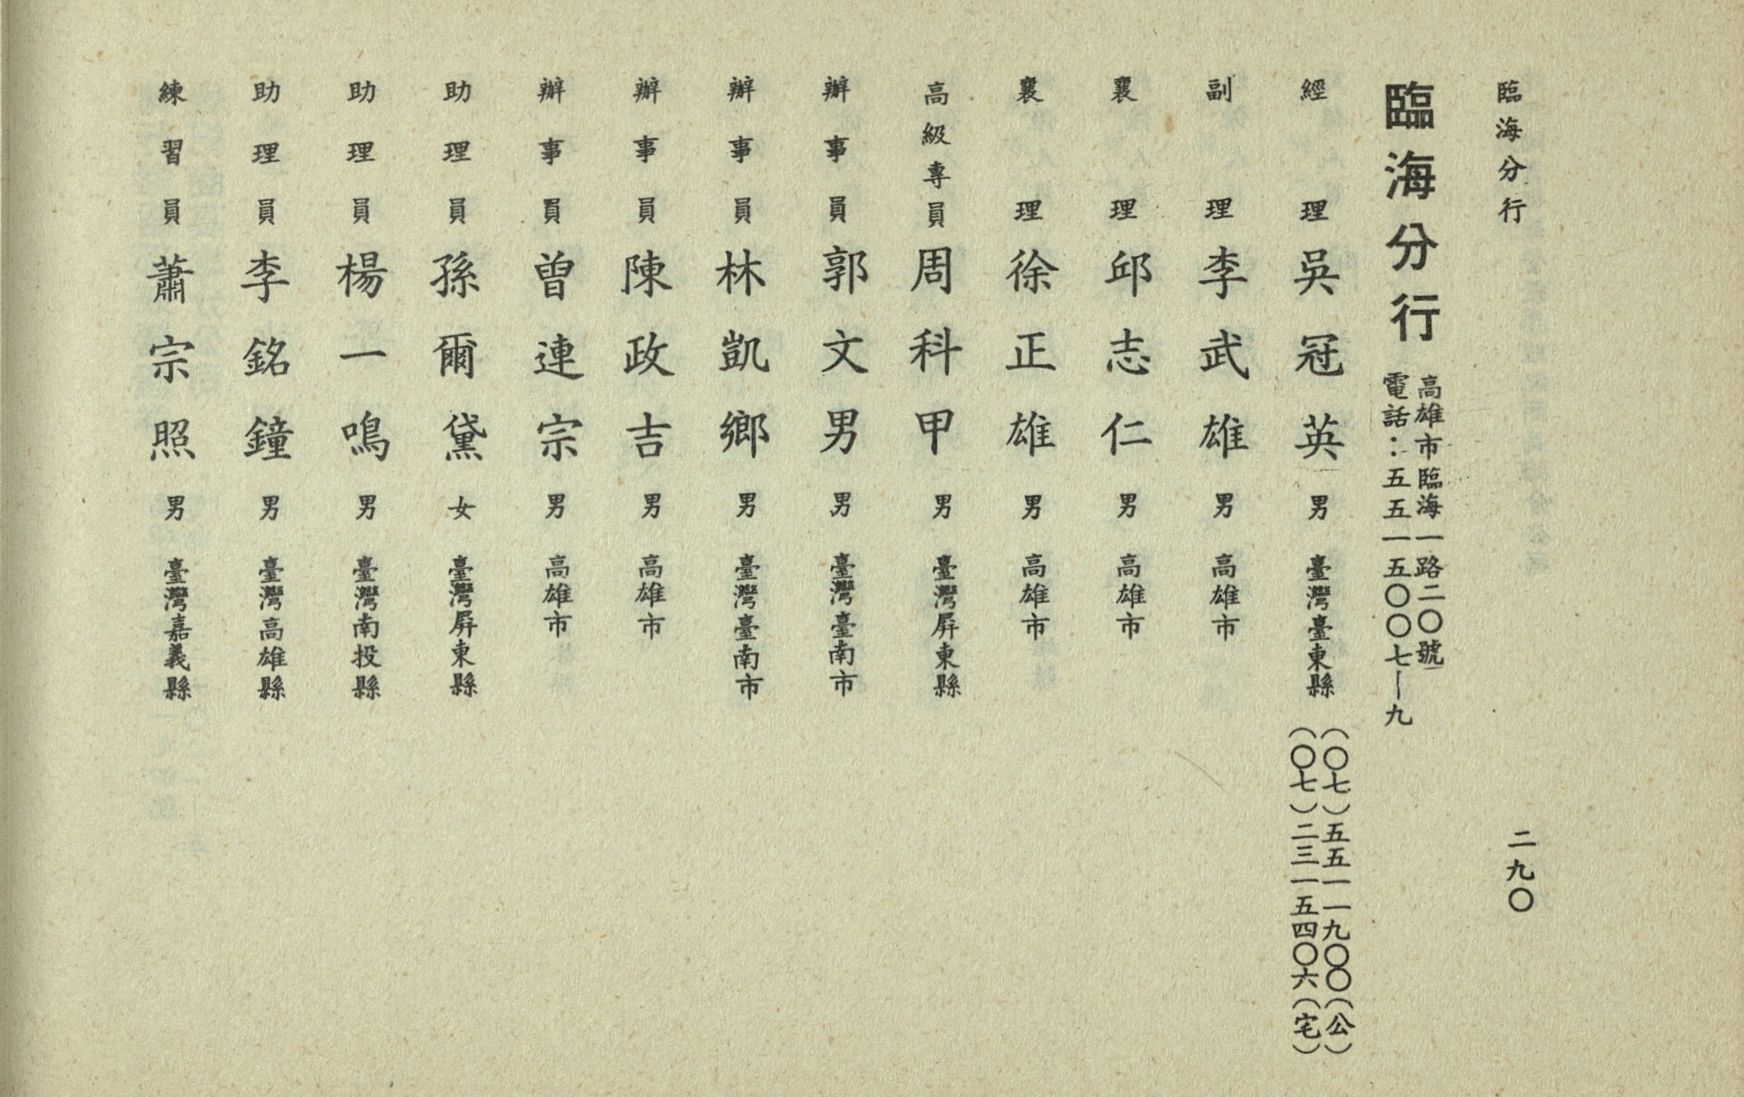 臨海分行
二九〇
臨海分行
高雄市臨海一路二〇號
電話：五五一五〇〇七—九
經理 吳冠英 男 臺灣臺東縣
（〇七）五五一一九〇〇（公）
（〇七）二三一五四〇六（宅）
副理 李武雄 男 高雄市
襄理 邱志仁 男 高雄市
襄理 徐正雄 男 高雄市
高級專員 周科甲 男 臺灣屏東縣
辦事員 郭文男 男 臺灣臺南市
辦事員 林凱鄉 男 臺灣臺南市
辦事員 陳政吉 男 高雄市
辦事員 曾連宗 男 高雄市
助理員 孫爾黛 女 臺灣屏東縣
助理員 楊一鳴 男 臺灣南投縣
助理員 李銘鐘 男 臺灣高雄縣
練習員 蕭宗照 男 臺灣嘉義縣